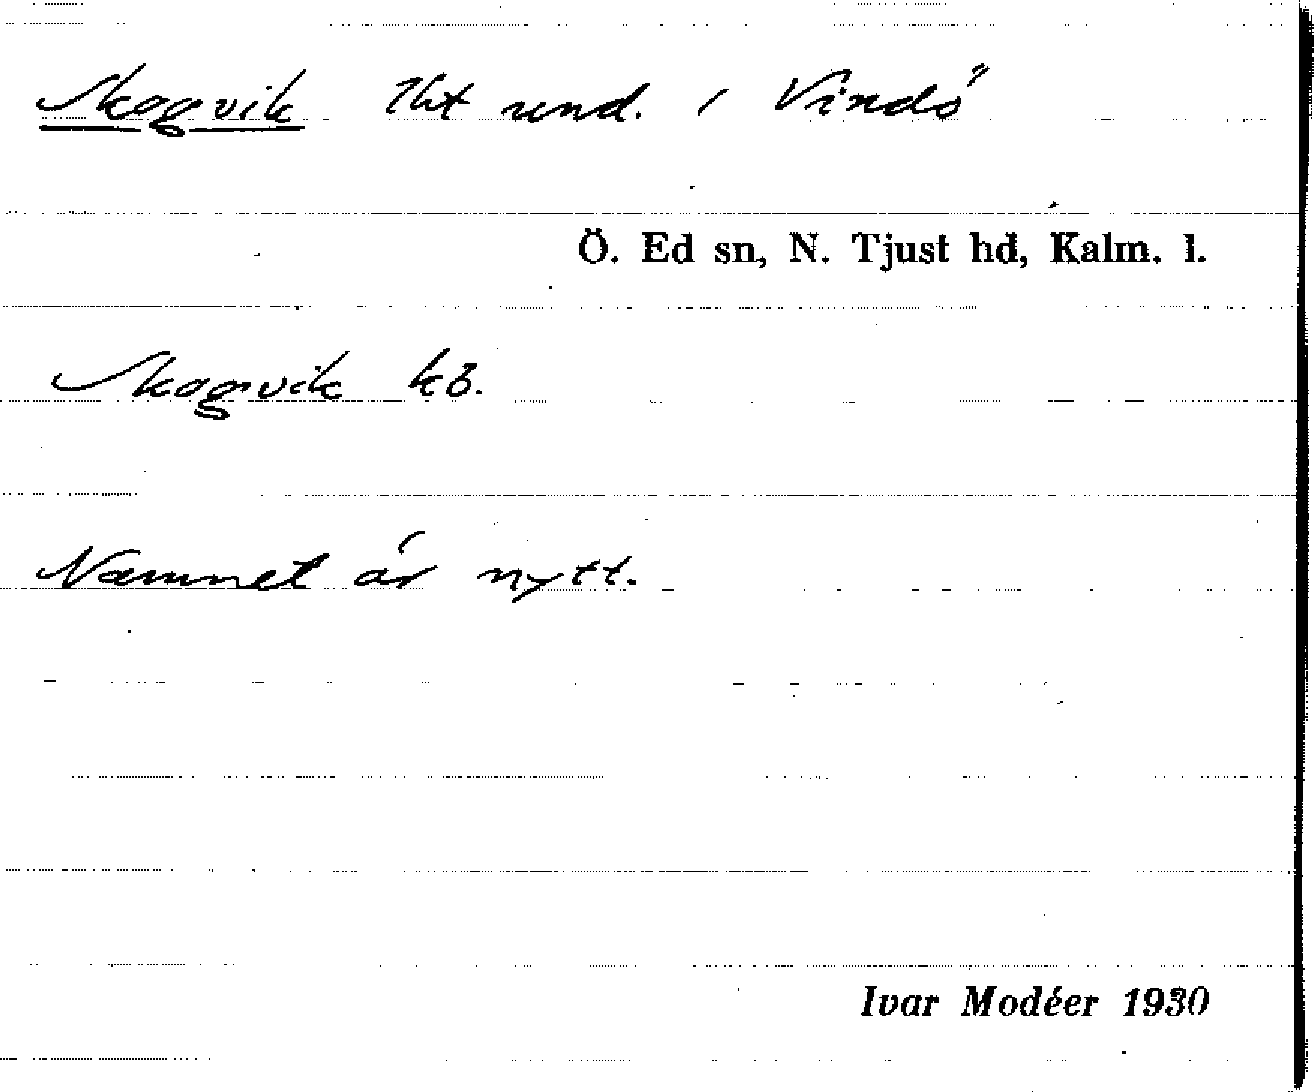 Skogvik lht und. i Vindö
Ö. Ed sn, N. Tjust hd, Kalm. l.
Skogvik kb.
Namnet är nytt.
Ivar Modéer 1930